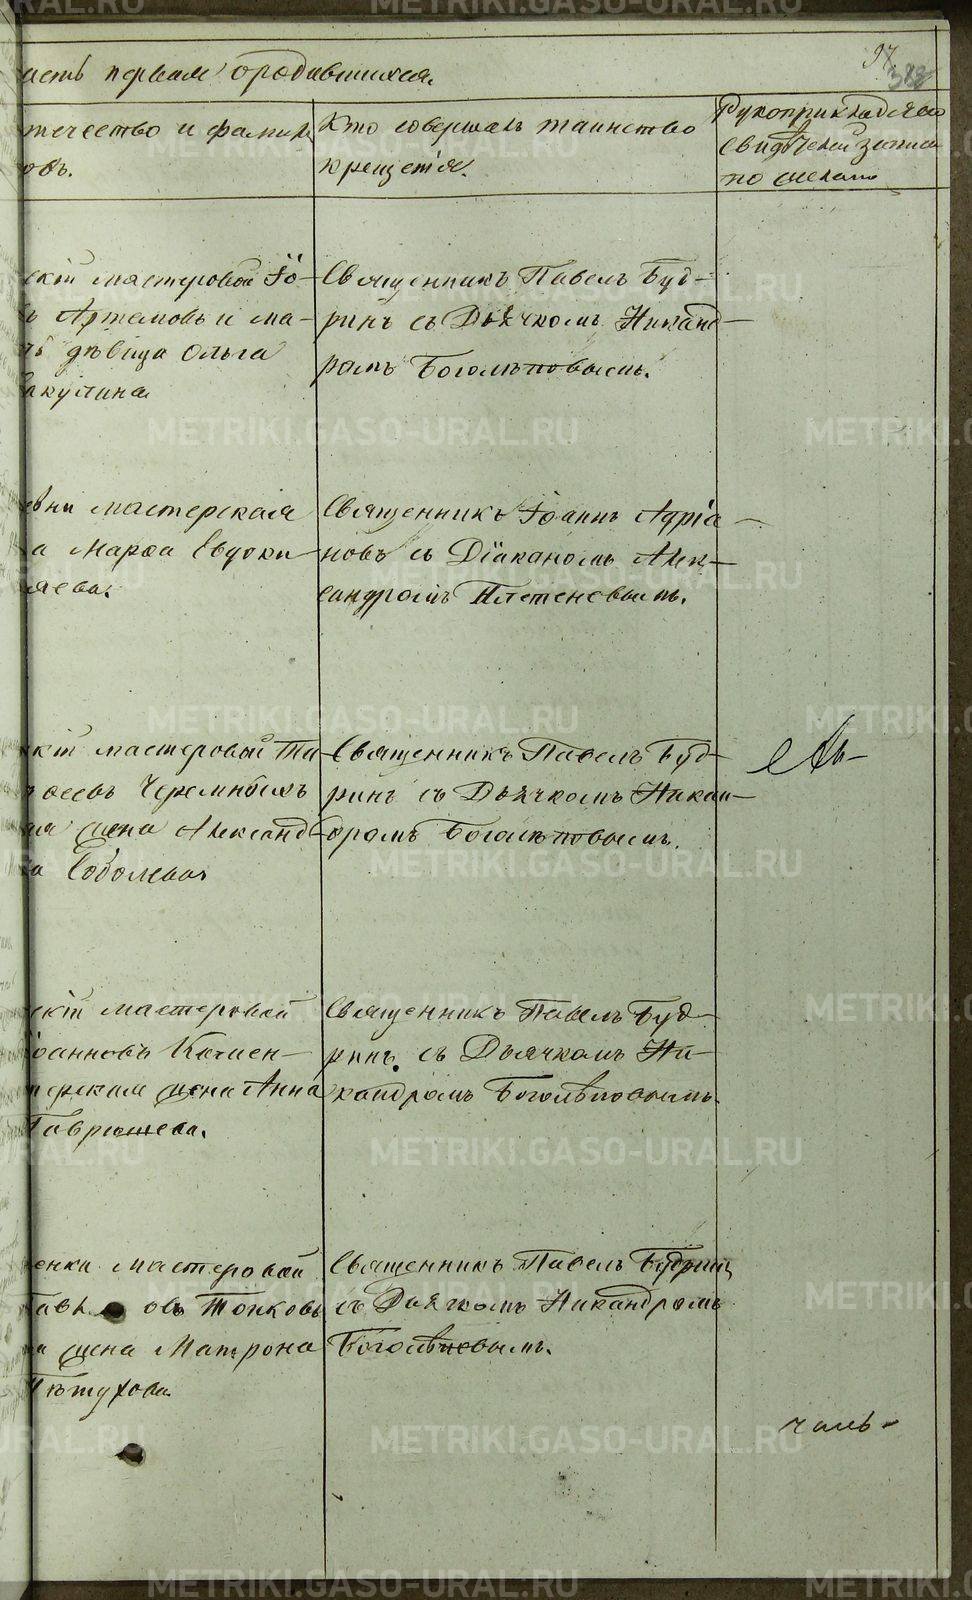 асть первая о родившихся.
97
388
течество и фамил
овъ.
Кто совершалъ таинство
крещетія.
Рукоприкладство
свидѣтелей записи
по желанію
скій мастеровой Іо-
ъ Артемовъ и ма-
ть дѣвица Ольга
акулина
Священникъ Павелъ Буд-
ринъ съ Дьячкомъ Никанд-
ромъ Боголѣповымъ.
евни мастерская
а Марѳа Евдоки
яева.
Священникъ Іоаннъ Адріа-
новъ съ Діакономъ Алек-
сандромъ Плетеневымъ.
скій мастеровой Ти
осевъ Черемныхъ
ая жена Александ
а Соболева
Священникъ Павелъ Буд-
ринъ съ Дьячкомъ Никан-
дромъ Боголѣповымъ.
скій мастеровой
оанновъ Камен-
терская жена Анна
Гаврюшева.
Священникъ Павелъ Буд-
ринъ съ Дьячкомъ Ни-
кандромъ Боголѣповымъ.
енки мастеровой
авл овъ Топковъ
а жена Матрона
Пѣтухова
Священникъ Павелъ Будринъ
съ Дьячкомъ Никандромъ
Боголѣповымъ.
чаль-
METRIKI.GASO-URAL.RU